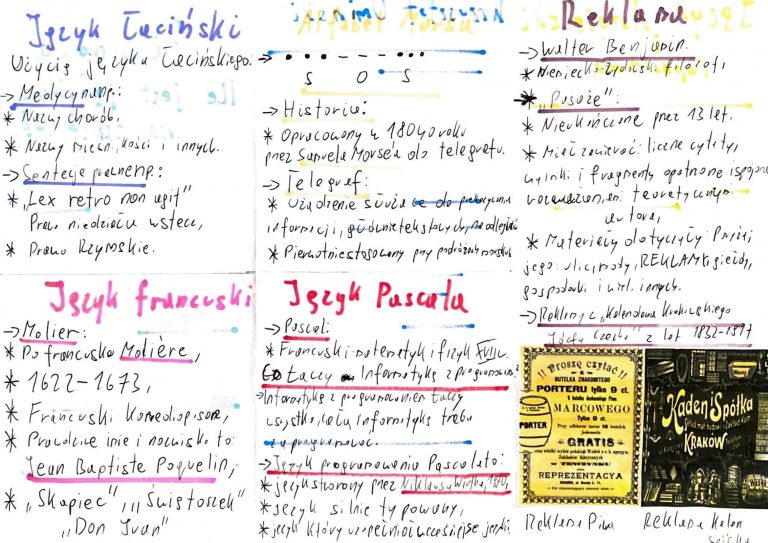 Język Łaciński
Użycia języka Łacińskiego:
→ Medycyna np.:
* Nazwy chorób,
* Nazwy mięśni, kości i innych.
→ Sentencje prawne np.:
* „Lex retro non agit"
Prawo nie działa wstecz,
* Prawo Rzymskie.
Alfabet Morsa
→ • • • – – – • • •
S O S
→ Historia:
* Opracowany w 1840 roku
przez Samuela Morse'a do telegrafu.
→ Telegraf:
* Urządzenie służące do
informacji, głównie tekstowych, na odległość
* Pierwotnie stosowany przy
Reklama
→ Walter Benjamin.
* Niemiecko-Żydowski filozof,
* „Pasaże":
* Nieukończone przez 13 lat,
* Mieć zawierać: liczne cytaty,
wycinki i fragmenty opatrzone i spojone
teoretycznym
autora,
* Materiały dotyczyły Paryża,
jego: ulic, mody, REKLAM, giełdy,
gospodarki i wielu innych.
→ Reklamy z „Kalendarza Krakowskiego
Józefa Czecha" z lat 1832-1917
Język francuski
→ Molier:
* Po francusku Molière,
* 1622-1673,
* Francuski Komediopisarz,
* Prawdziwe imię i nazwisko to:
Jean Baptiste Poquelin,
* „Skąpiec", „Świętoszek"
„Don Juan"
Język Pascala
→ Pascal:
* Francuski matematyk i fizyk XVII w.
Łączy Informatykę z programowaniem
→ Informatykę z programowaniem łączy
wszystko, całą informatykę trzeba
zaprogramować.
→ Język programowania Pascala to:
* język stworzony przez Niklausa Wirtha,
* język silnie typowany,
* język który uzupełnił wcześniejsze języki.
!! Proszę czytać!!
BUTELKA ZNAKOMITEGO
PORTERU tylko 9 ct.
MARCOWEGO
Tylko 9 ct.
PORTER
GRATIS
w TENCZYNKU
REPREZENTACYA
Kaden i Spółka
KRAKÓW
Reklama Piwa
Reklama Kaden
Spółka